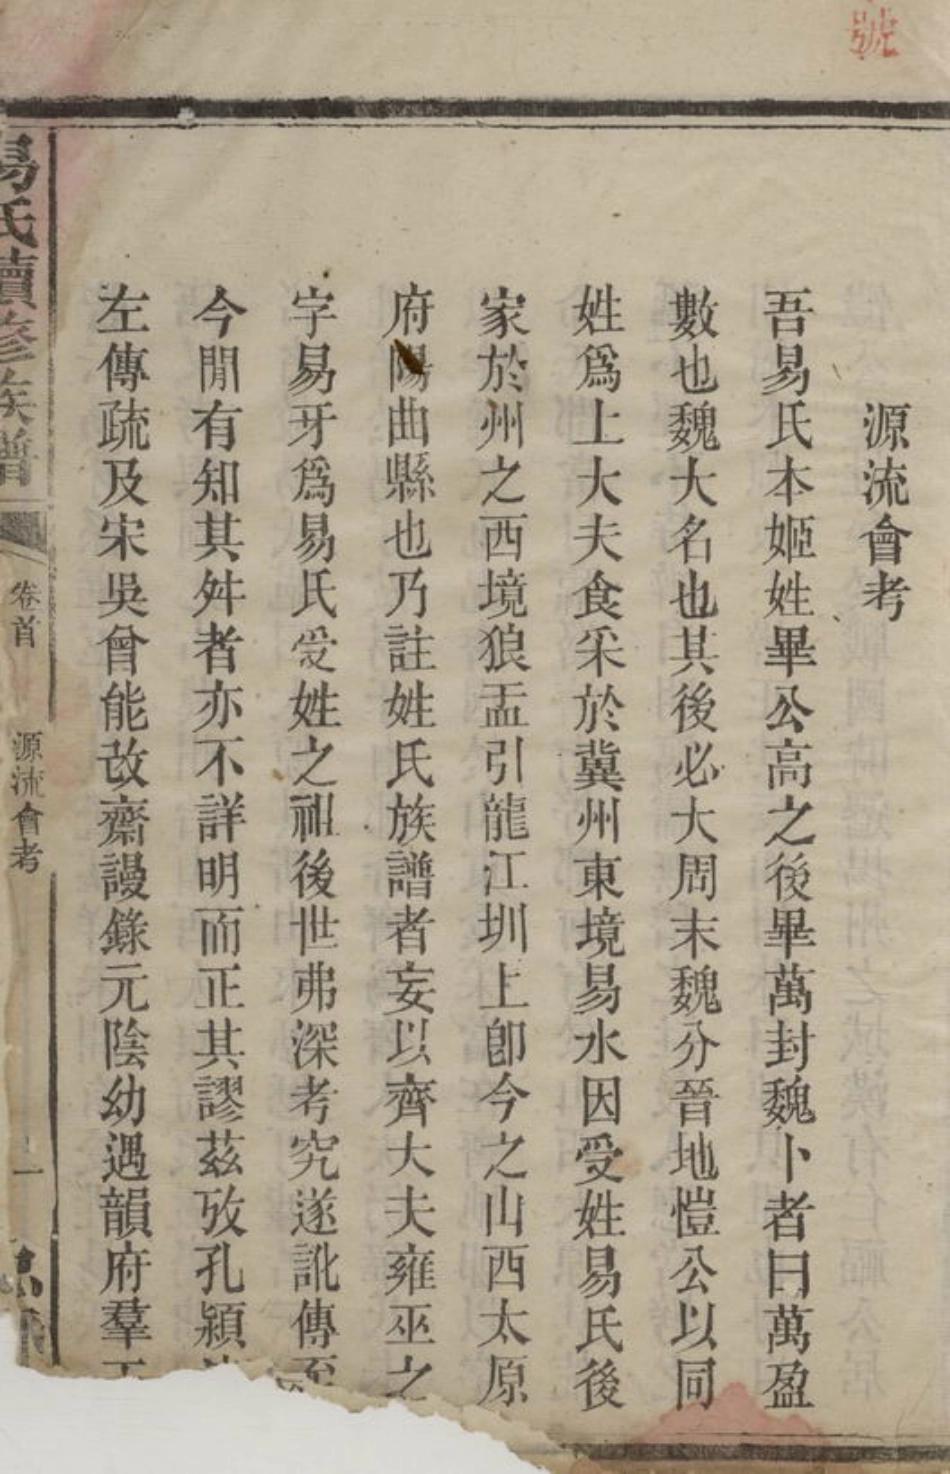 號
源流會考
吾易氏本姬姓畢公高之後畢萬封魏卜者曰萬盈
數也魏大名也其後必大周末魏分晉地愷公以同
姓爲上大夫食采於冀州東境易水因受姓易氏後
家於州之西境狼盂引龍江圳上卽今之山西太原
府陽曲縣也乃註姓氏族譜者妄以齊大夫雍巫之
字易牙爲易氏受姓之祖後世弗深考究遂訛傳至
今閒有知其舛者亦不詳明而正其謬茲攷孔潁
左傳疏及宋吳曾能改齋謾錄元陰幼遇韻府羣玉
易氏續修族譜
卷首
源流會考
一